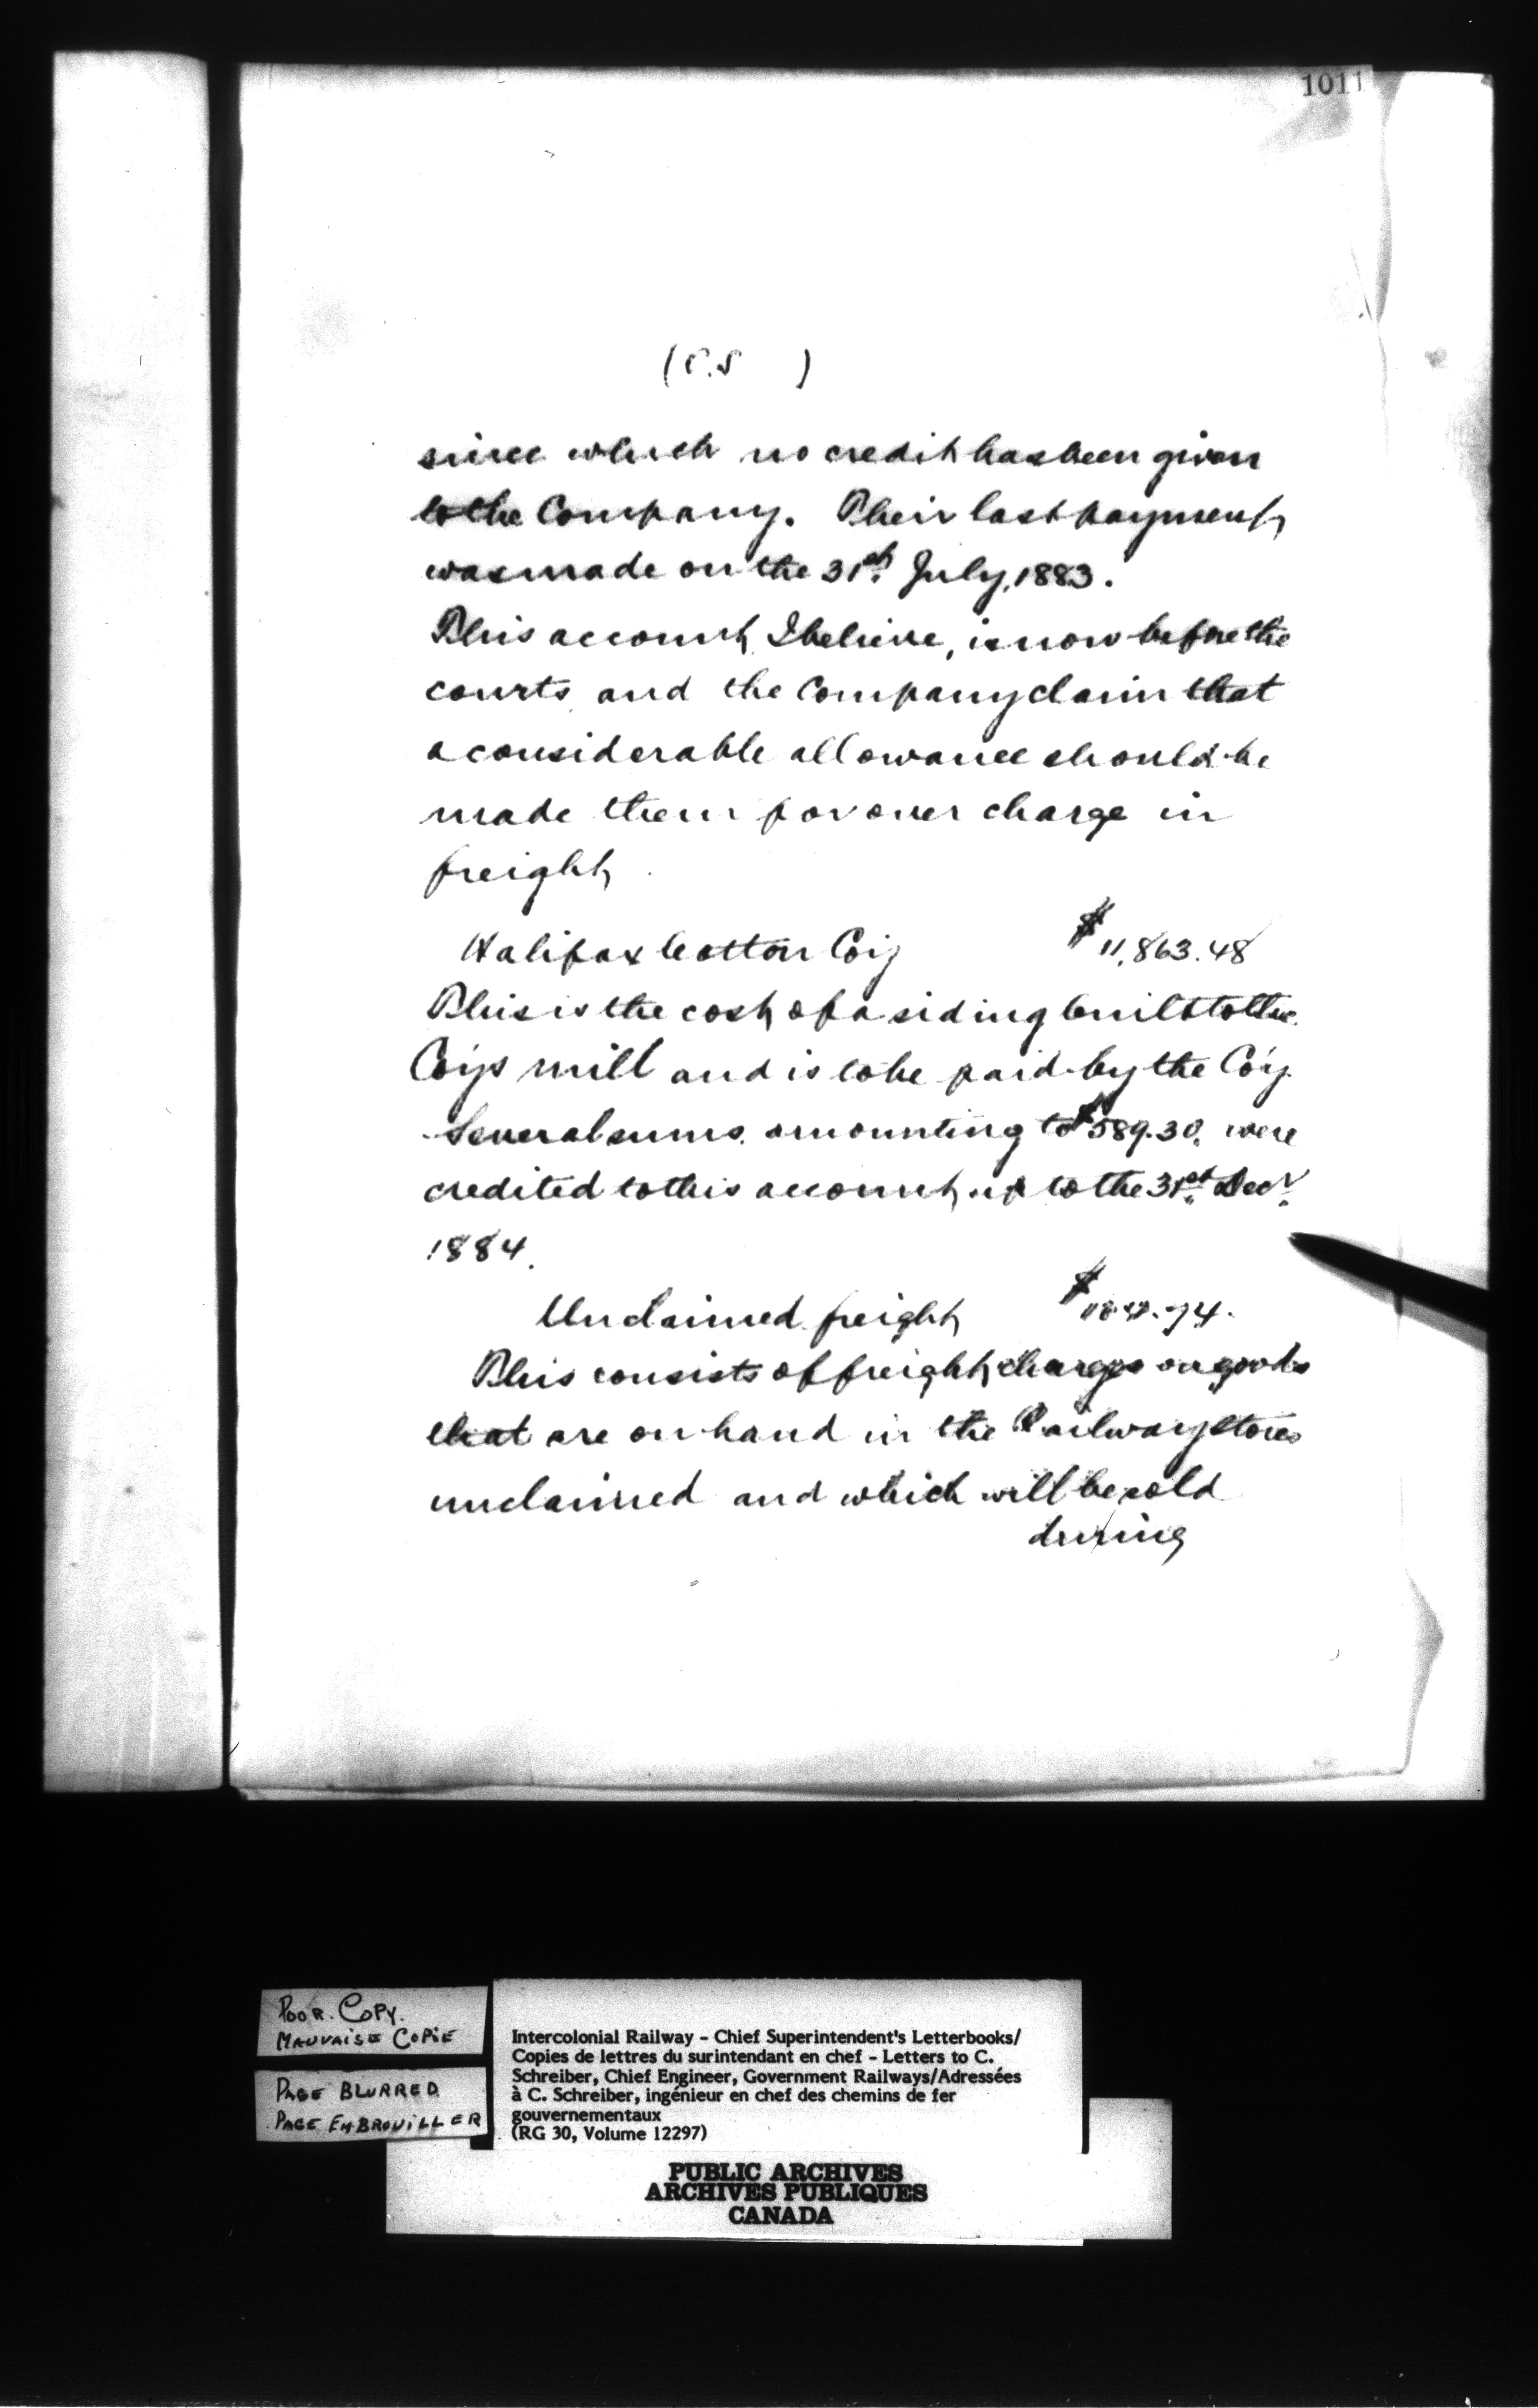 1011
(C.S )
since which no credit has been given
to the Company. Their last payment
was made on the 31st July, 1883.
This account, I believe, is now before the
courts, and the Company claim that
a considerable allowance should be
made them for over charge in
freight.
Halifax Cotton Co'y $11,863.48
This is the cost of a siding built to the
Co'ys mill and is to be paid by the Co'y.
Several sums, amounting to $589.30, were
credited to this account, up to the 31st Decr.
1884.
Unclaimed freight
This consists of freight charges on goods
that are on hand in the Railway stores
unclaimed and which will be sold
during
POOR. COPY.
MAUVAISE COPIE
PAGE BLURRED
PAGE EMBROUILLER
Intercolonial Railway - Chief Superintendent's Letterbooks/
Copies de lettres du surintendant en chef - Letters to C.
Schreiber, Chief Engineer, Government Railways/Adressées
à C. Schreiber, ingénieur en chef des chemins de fer
gouvernementaux
(RG 30, Volume 12297)
PUBLIC ARCHIVES
ARCHIVES PUBLIQUES
CANADA